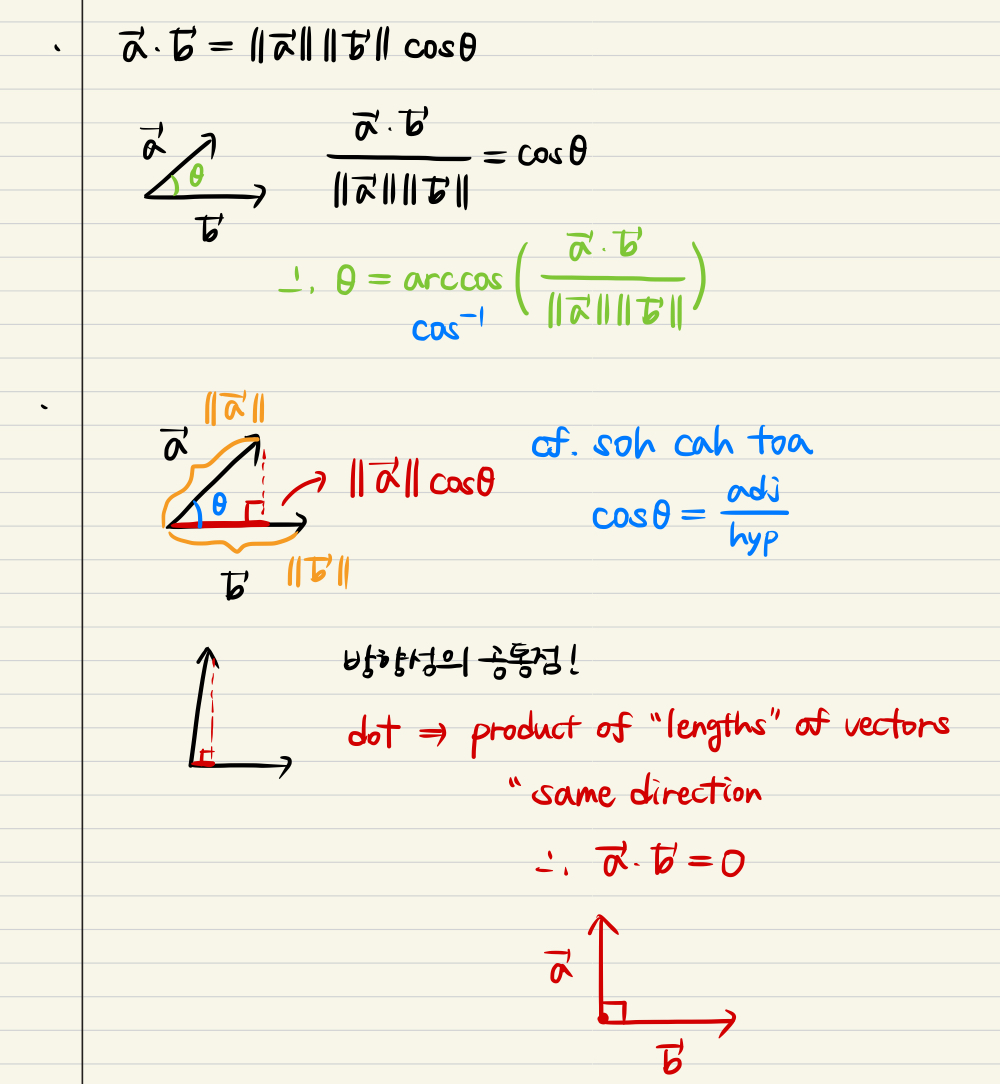 a⃗ · b⃗ = ||a⃗|| ||b⃗|| cosθ
a⃗
θ
b⃗
a⃗ · b⃗ / ||a⃗|| ||b⃗|| = cosθ
∴ θ = arccos ( a⃗ · b⃗ / ||a⃗|| ||b⃗|| )
cos⁻¹
||a⃗||
a⃗
θ
||a⃗|| cosθ
b⃗
||b⃗||
cf. soh cah toa
cosθ = adj / hyp
방향성의 공통점!
dot ⇒ product of "lengths" of vectors
"same direction
∴ a⃗ · b⃗ = 0
a⃗
b⃗